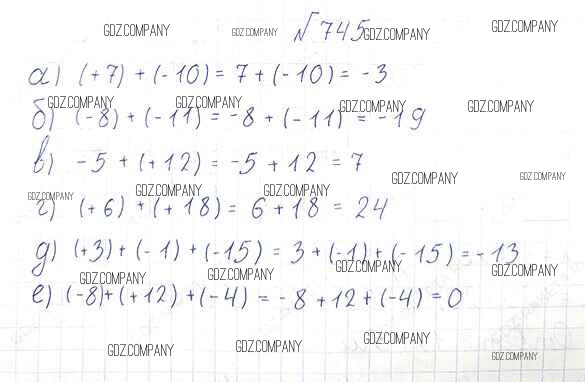 №745
а) (+7) + (-10) = 7 + (-10) = -3
б) (-8) + (-11) = -8 + (-11) = -19
в) -5 + (+12) = -5 + 12 = 7
г) (+6) + (+18) = 6 + 18 = 24
д) (+3) + (-1) + (-15) = 3 + (-1) + (-15) = -13
е) (-8) + (+12) + (-4) = -8 + 12 + (-4) = 0
GDZ.COMPANY GDZ.COMPANY GDZ.COMPANY GDZ.COMPANY
GDZ.COMPANY GDZ.COMPANY GDZ.COMPANY GDZ.COMPANY
GDZ.COMPANY GDZ.COMPANY GDZ.COMPANY GDZ.COMPANY GDZ.COMPANY
GDZ.COMPANY GDZ.COMPANY GDZ.COMPANY GDZ.COMPANY
GDZ.COMPANY GDZ.COMPANY GDZ.COMPANY GDZ.COMPANY